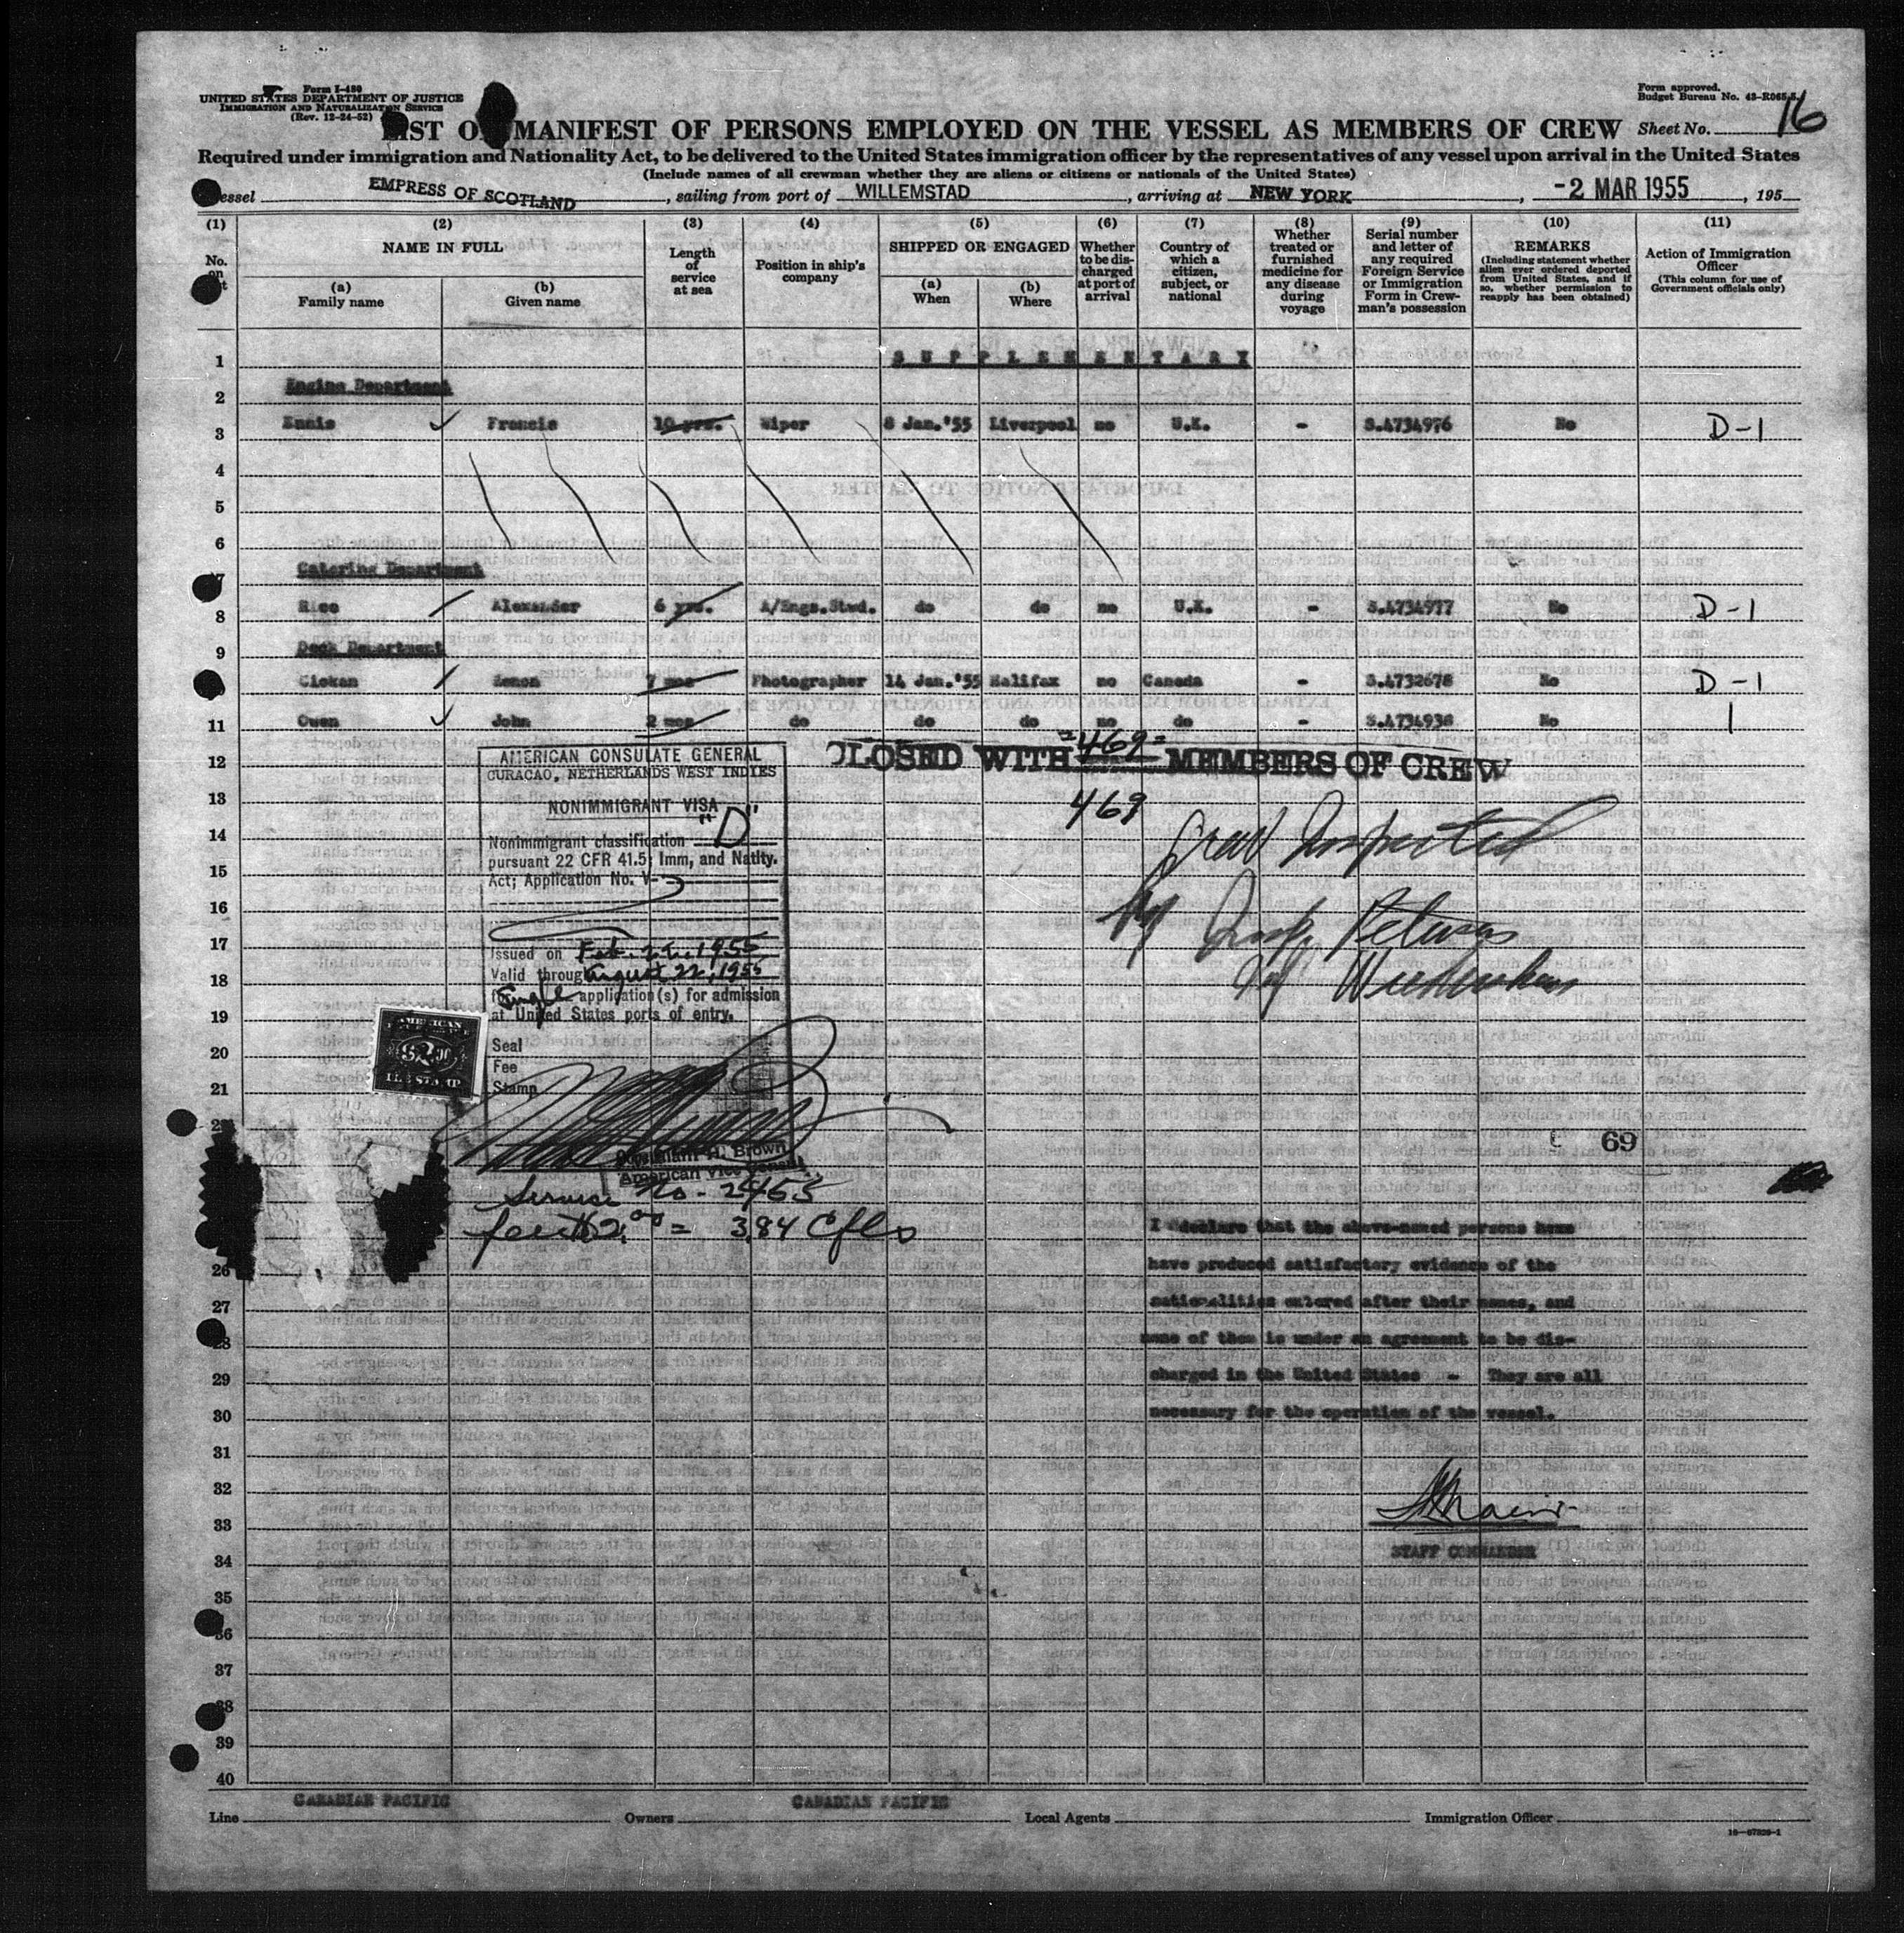 Form I-480
UNITED STATES DEPARTMENT OF JUSTICE
IMMIGRATION AND NATURALIZATION SERVICE
(Rev. 12-24-52)
Form approved.
Budget Bureau No. 43-R065.5
LIST OR MANIFEST OF PERSONS EMPLOYED ON THE VESSEL AS MEMBERS OF CREW Sheet No. 16
Required under immigration and Nationality Act, to be delivered to the United States immigration officer by the representatives of any vessel upon arrival in the United States
(Include names of all crewman whether they are aliens or citizens or nationals of the United States)
Vessel EMPRESS OF SCOTLAND, sailing from port of WILLEMSTAD, arriving at NEW YORK, -2 MAR 1955, 195
(1) (2) (3) (4) (5) (6) (7) (8) (9) (10) (11)
No. on list
NAME IN FULL
(a) Family name
(b) Given name
Length of service at sea
Position in ship's company
SHIPPED OR ENGAGED
(a) When
(b) Where
Whether to be discharged at port of arrival
Country of which a citizen, subject, or national
Whether treated or furnished medicine for any disease during voyage
Serial number and letter of any required Foreign Service or Immigration Form in Crewman's possession
REMARKS
(Including statement whether alien ever ordered deported from United States, and if so, whether permission to reapply has been obtained)
Action of Immigration Officer
(This column for use of Government officials only)
1 SUPPLEMENTARY
2 Engine Department
3 Ennis Francis 10 yrs. Wiper 8 Jan.'55 Liverpool no U.K. - S.4734976 No D-1
4
5
6
7 Catering Department
8 Rice Alexander 6 yrs. A/Engs.Stwd. do do no U.K. - S.4734977 No D-1
9 Deck Department
10 Ciokan Zenon 7 mos Photographer 14 Jan.'55 Halifax no Canada - S.4732678 No D-1
11 Owen John 2 mos do do do no do - S.4734938 No 1
12
13
14
15
16
17
18
19
20
21
22
AMERICAN CONSULATE GENERAL
CURACAO, NETHERLANDS WEST INDIES
NONIMMIGRANT VISA
Nonimmigrant classification "D"
pursuant 22 CFR 41.5; Imm, and Natlty.
Act; Application No. V-
Issued on Feb. 22, 1955
Valid through August 22, 1955
for Single application(s) for admission
at United States ports of entry.
Seal
Fee
Stamp
AMERICAN
$2.00
FEE STAMP
William H. Brown
American Vice Consul
Service No. - 2455
fee $2.00 = 3.84 Cfls
CLOSED WITH =469= MEMBERS OF CREW
469
Crew Inspected
by Insp. Peterson
69
I declare that the above-named persons have
have produced satisfactory evidence of the
nationalities entered after their names, and
none of them is under an agreement to be dis-
charged in the United States - They are all
necessary for the operation of the vessel.
STAFF COMMANDER
26
27
28
29
30
31
32
33
34
35
36
37
38
39
40
Line CANADIAN PACIFIC Owners CANADIAN PACIFIC Local Agents Immigration Officer
16-67928-1